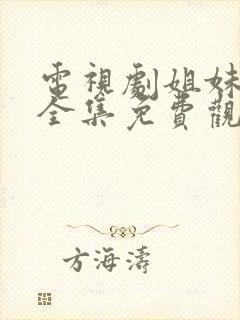 電視劇姐妹
全集免費觀
方海濤